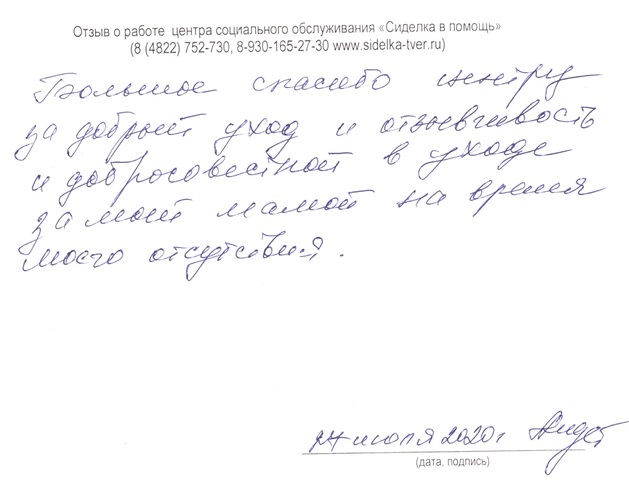 Отзыв о работе центра социального обслуживания «Сиделка в помощь»
(8 (4822) 752-730, 8-930-165-27-30 www.sidelka-tver.ru)
Большое спасибо центру
за добрый уход и отзывчивость
и добросовестной в уходе
за моей мамой на время
моего отсутствия.
июля 2020 г
(дата, подпись)